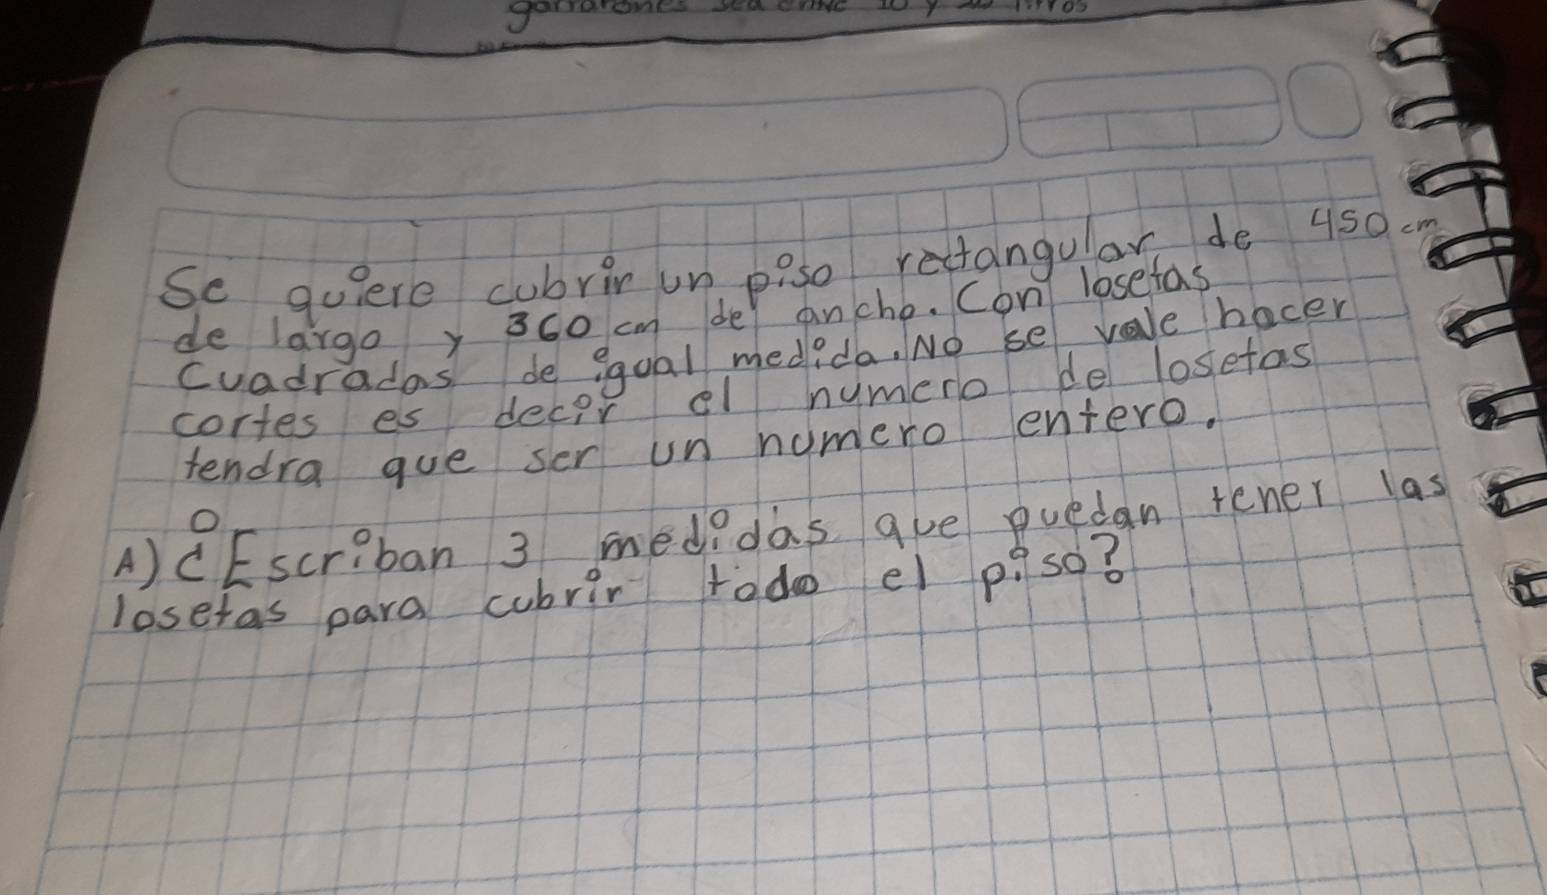 garrafones sea entre 10 y 20 litros
Se quiere cubrir un piso rectangular de 450 cm
de largo y 360 cm de ancho. Con losetas
cuadradas de igual medida. No se vale hacer
cortes es decir el numero de losetas
tendra que ser un numero entero.
A) ¿Escriban 3 medidas que puedan tener las
losetas para cubrir todo el piso?